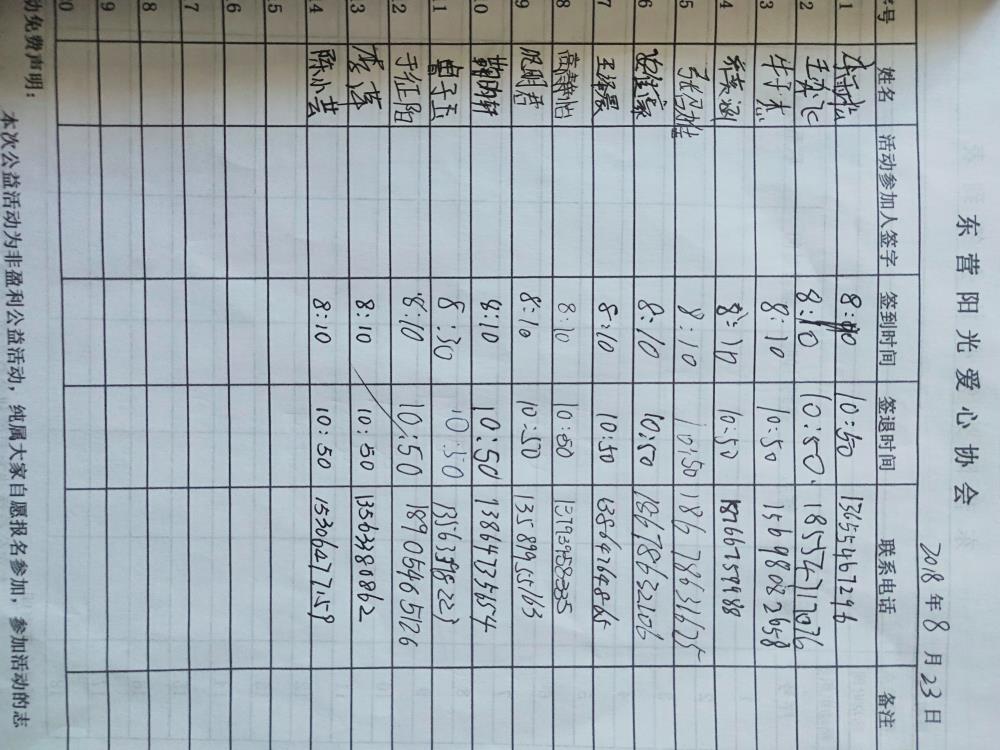 东营阳光爱心协会
2018年8月23日
序号 姓名 活动参加人签字 签到时间 签退时间 联系电话 备注
1 8:10 10:50 13655467296
2 8:10 10:50 18557717076
3 牛子杰 8:10 10:50 15698082658
4 8:10 10:50 18766759988
5 8:10 10:50 18678631625
6 8:10 10:50 18678632206
7 王泽晨 8:10 10:50 13864764865
8 高静怡 8:10 10:50
9 倪明君 8:10 10:50 13589955163
10 8:10 10:50 13864735654
11 8:30 10:50
12 于征阳 8:10 10:50 18905465126
13 李萍 8:10 10:50 13563380862
14 陈小芸 8:10 10:50 15306477159
5
6
7
8
9
0
动免费声明:
本次公益活动为非盈利公益活动,纯属大家自愿报名参加,参加活动的志